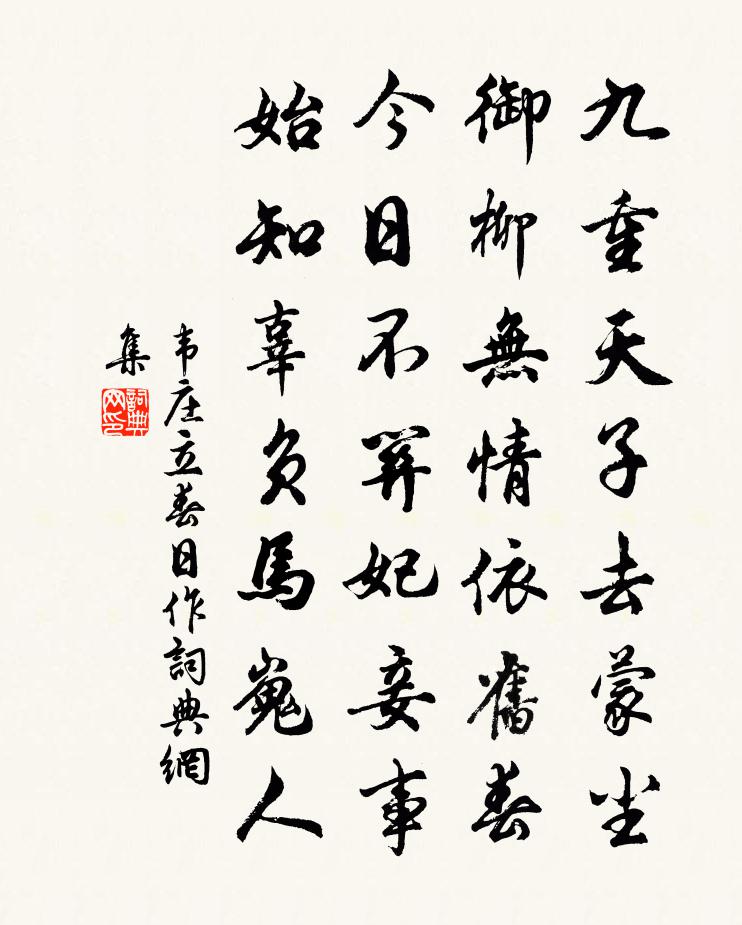 九重天子去蒙尘
御柳無情依舊春
今日不關妃妾事
始知辜负馬嵬人
韦庄立春日作詞典網
集
詞典
网印